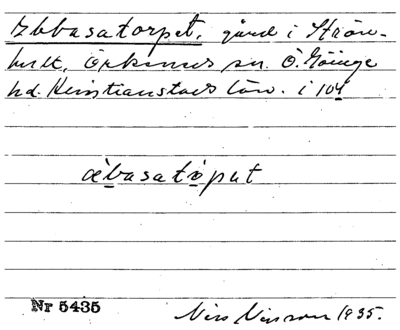 Ebbasatorpet, gård i Strön-
hult, Örkeneds sn. Ö. Göinge
hd. Kristianstads län. i 104
æbasatòput
Nr 5435
Nils Nilsson 1935.